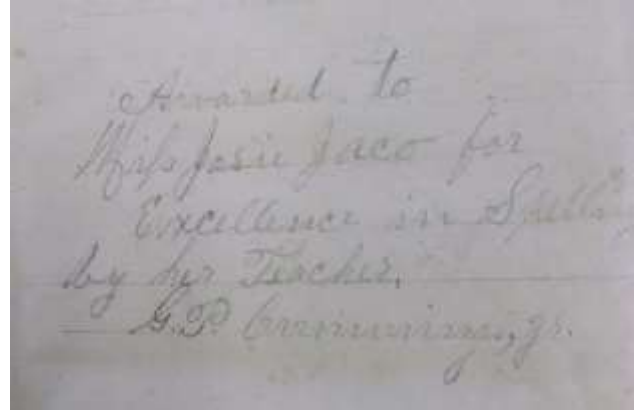 Awarded to
Miss Josie Jaco for
Excellence in Spelling
by her Teacher,
G.P. Cummings, Jr.